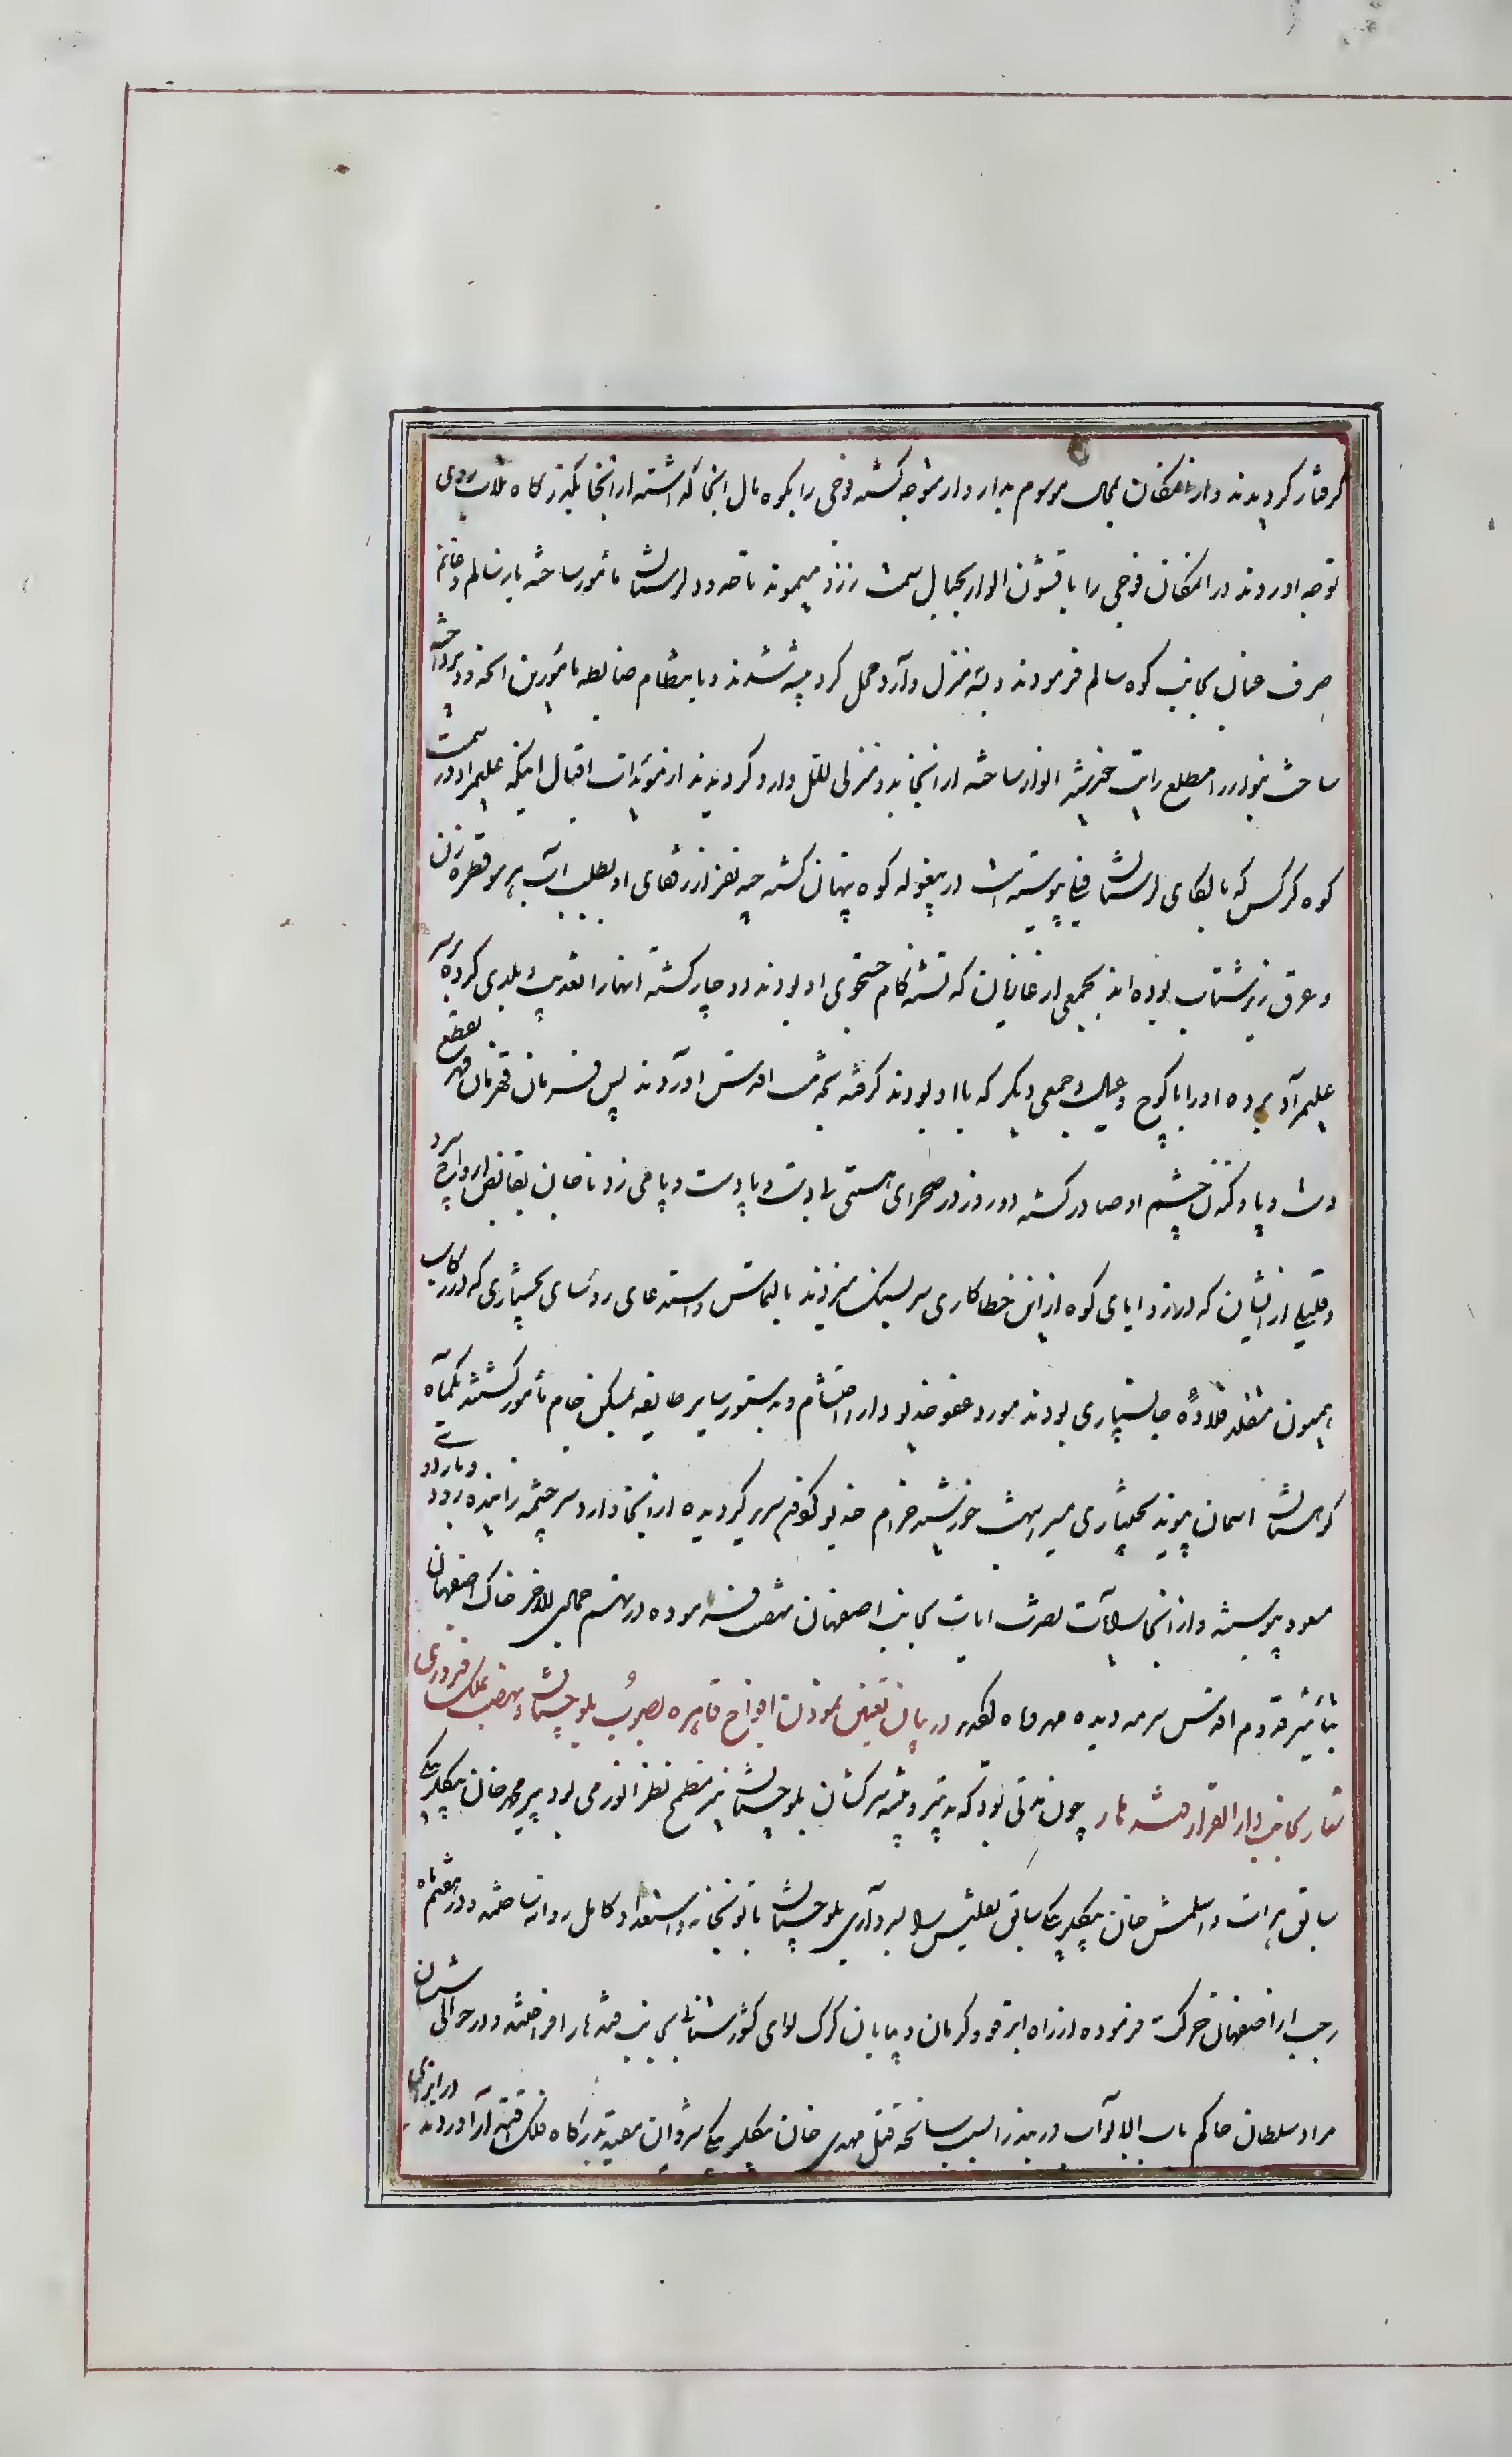 گرفتار گردیدند و از انمکان بمحال موسوم بدار و ار متوجه گشته فوجی را بکوه مال انجا گذاشته از انجا بگذر گاه فلات روی
توجه اوردند در انمکان فوجی را با قشون الوار بجبال سمت رزذ میموند تا حدود لرستان مامور ساخته یار سالم و غانم
صرف عنان بجانب کوه سالم فرمودند و سه منزل وارد محل کرد بیشه شدند و بانتظام ضابطه مامورین انحدود پرداخته
ساحت بنوار را مطلع رایت خورشید انوار ساخته از انجا بدو منزلی للتل وارد گردیدند از موئدات اقبال اینکه علیمراد در سمت
کوه کرکس که بالکای لرستان فیلی پیوسته است در پیغوله کوه پنهان گشته چند نفر از رفقای او بطلب اب بهر سو قطره زن
و عرق ریز شتاب بوده اند بجمعی از غازیان که تشنه کام جستجوی او بودند دو چار گشته انها را تعذیب و بلدی کرده بر سر
علیمراد برده او را با کوچ و عیال و جمعی دیگر که با او بودند گرفته بخدمت اقدس اوردند پس فرمان قهرمان قهر بقطع
دست و پا و کندن چشم او صادر گشته دو روز در صحرای هستی بی دست و پا دست و پا می زد تا جان بقابض ارواح سپرد
و قلیلی از ایشان که در زوایای کوه از این خطا کاری سر بسنگ میزدند بالتماس و استدعای روسای بختیاری که در رکاب
همیون متقلد قلاده جانسپاری بودند مورد عفو خدیو دارا احتشام و بدستور سایر طایفه بمسکن خام مامور گشتند یکماه
کوهستان اسمان پیوند بختیاری مسیر اشهب خورشید خرام خدیو گردون سریر گردیده از انجا وارد سر چشمه زاینده رود و مارلو
مسعود پیوسته و از انجا رایات نصرت ایات بجانب اصفهان منصرف فرموده در نهم جمادی الاخر خاک اصفهان
بتاثیر قدوم اقدس سرمه دیده مهر و ماه گردید در بیان تعیین نمودن افواج قاهره بصوب بلوچستان و نهضت ملک فیروزی
شعار بجانب دار القرار قندهار چون مدتی بود که تدبیر و تنبیه سرکشان بلوچستان نیز مطمح نظر انور می بود پیر محمد خان بیگلربیگی
سابق هرات و اسلمش خان بیگلربیگی سابق تفلیس را بسرداری بلوچستان با توپخانه و استعداد کامل روانه ساخته و در هفتم ماه
رجب از اصفهان حرکت فرموده از راه ابرقو و کرمان و بیابان کرک لوای کشورستانی بجانب قندهار افراختند و در حوالی
مراد سلطان حاکم باب الابواب دربند را بسبب سانحه قتل مهدی خان بیگلربیگی شروان مقید بدرگاه فلک